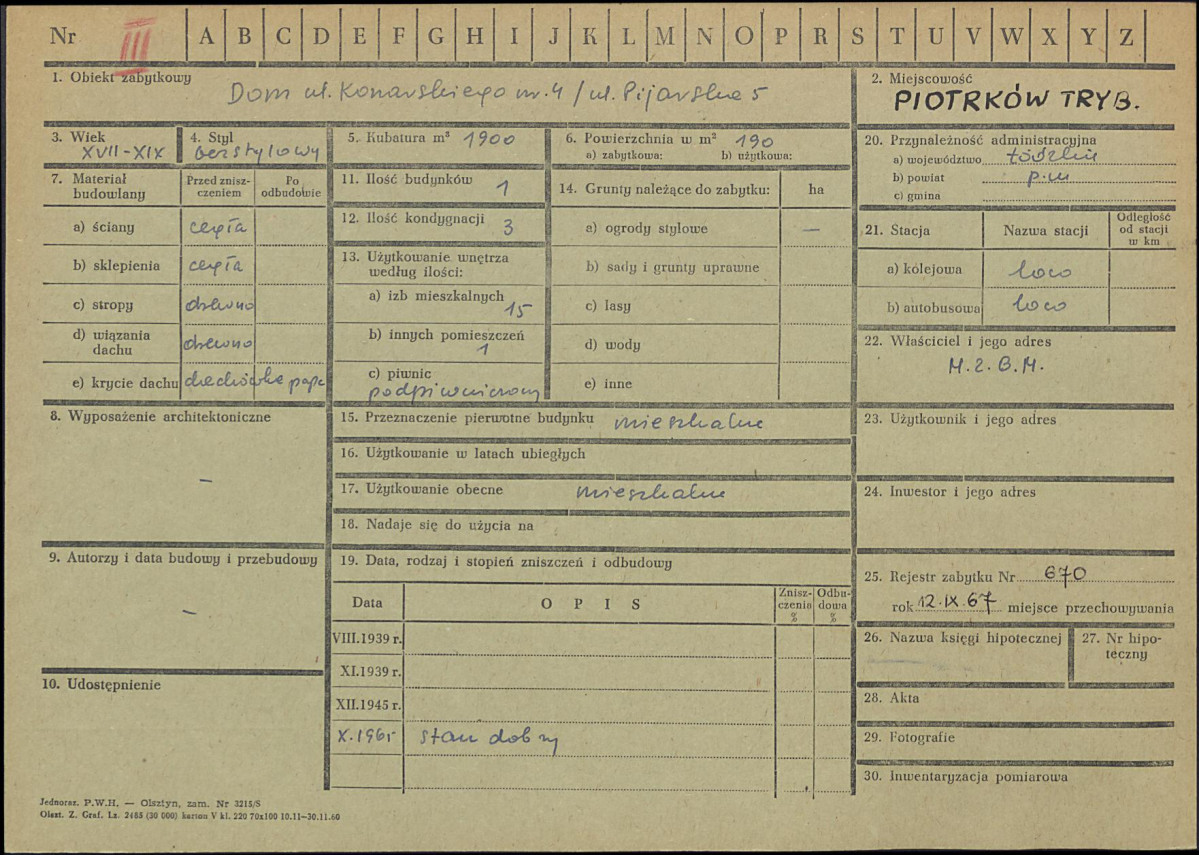 Nr III A B C D E F G H I J K L M N O P R S T U V W X Y Z
1. Obiekt zabytkowy
Dom ul. Konarskiego nr. 4 / ul. Pijarska 5
2. Miejscowość
PIOTRKÓW TRYB.
3. Wiek
XVII-XIX
4. Styl
bezstylowy
5. Kubatura m³ 1900
6. Powierzchnia w m² 190
a) zabytkowa: b) użytkowa:
7. Materiał budowlany
Przed zniszczeniem
Po odbudowie
a) ściany cegła
b) sklepienia cegła
c) stropy drewno
d) wiązania dachu drewno
e) krycie dachu dachówka papa
8. Wyposażenie architektoniczne
–
9. Autorzy i data budowy i przebudowy
–
10. Udostępnienie
11. Ilość budynków 1
12. Ilość kondygnacji 3
13. Użytkowanie wnętrza według ilości:
a) izb mieszkalnych 15
b) innych pomieszczeń 1
c) piwnic
podpiwniczony
14. Grunty należące do zabytku: ha
a) ogrody stylowe –
b) sady i grunty uprawne
c) lasy
d) wody
e) inne
15. Przeznaczenie pierwotne budynku mieszkalne
16. Użytkowanie w latach ubiegłych
17. Użytkowanie obecne mieszkalne
18. Nadaje się do użycia na
19. Data, rodzaj i stopień zniszczeń i odbudowy
Data OPIS Zniszczenia % Odbudowa %
VIII.1939 r.
XI.1939 r.
XII.1945 r.
X.1965 stan dobry
20. Przynależność administracyjna
a) województwo łódzkie
b) powiat p.m
c) gmina
21. Stacja Nazwa stacji Odległość od stacji w km
a) kolejowa loco
b) autobusowa loco
22. Właściciel i jego adres
M.Z.B.M.
23. Użytkownik i jego adres
24. Inwestor i jego adres
25. Rejestr zabytku Nr 670
rok 12.IX.67 miejsce przechowywania
26. Nazwa księgi hipotecznej
27. Nr hipoteczny
28. Akta
29. Fotografie
30. Inwentaryzacja pomiarowa
Jednoraz. P.W.H. — Olsztyn, zam. Nr 3215/S
Olszt. Z. Graf. Lz. 2485 (30 000) karton V kl. 220 70x100 10.11—30.11.60